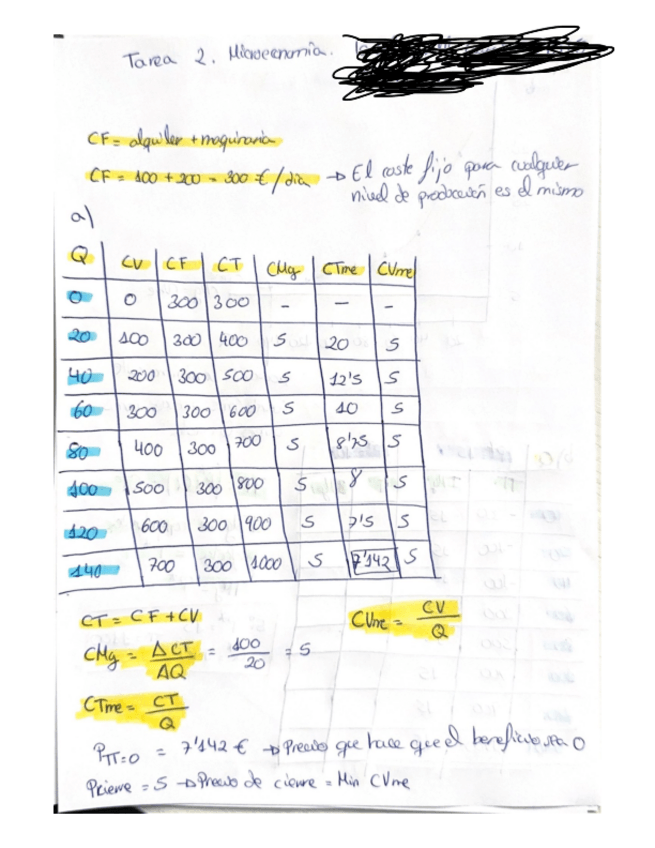 Tarea 2. Microeconomía.
CF = alquiler + maquinaria
CF = 100 + 200 = 300 €/día → El coste fijo para cualquier
nivel de producción es el mismo
a)
Q CV CF CT CMg CTme CVme
0 0 300 300 - - -
20 100 300 400 5 20 5
40 200 300 500 5 12'5 5
60 300 300 600 5 10 5
80 400 300 700 5 8'75 5
100 500 300 800 5 8 5
120 600 300 900 5 7'5 5
140 700 300 1000 5 7'142 5
CT = CF + CV CVme = CV/Q
CMg = ΔCT/ΔQ = 100/20 = 5
CTme = CT/Q
Pπ=0 = 7'142 € → Precio que hace que el beneficio sea 0
Pcierre = 5 → Precio de cierre = Min CVme